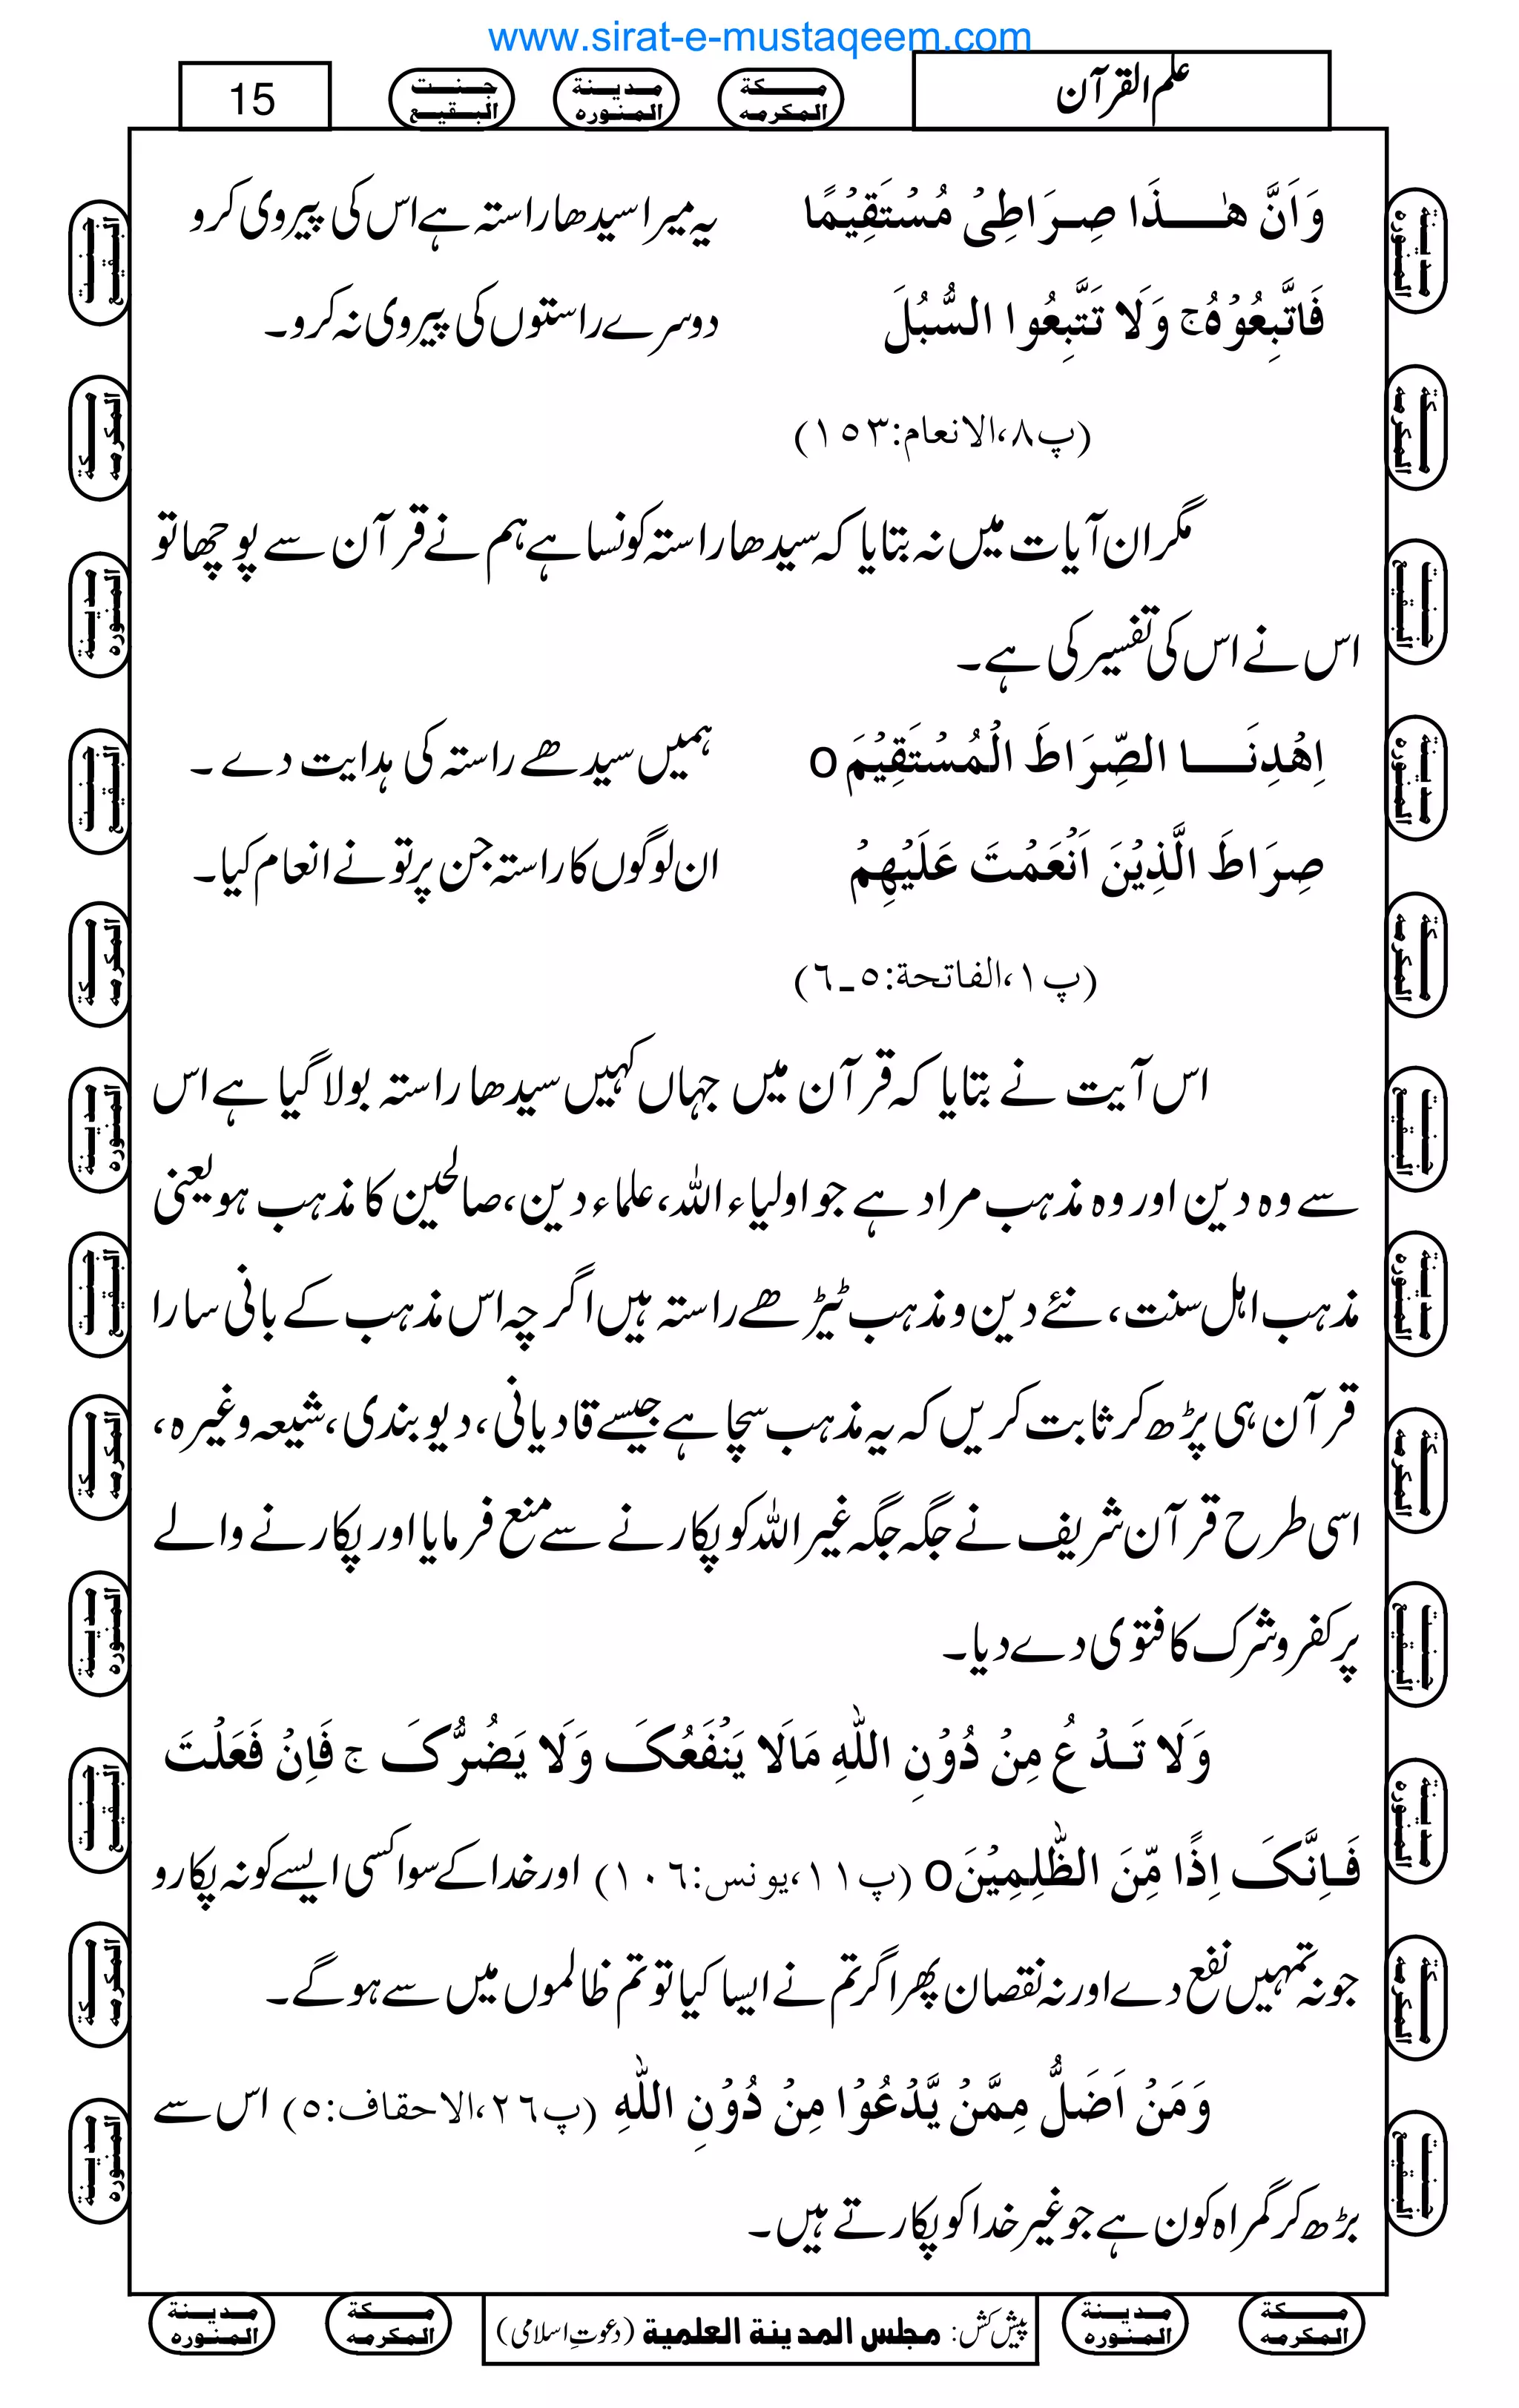 www.sirat-e-mustaqeem.com
علم القرآن
مكة المكرمه
مدينة المنوره
جنت البقيع
15
وَاَنَّ هٰذَا صِرَاطِیْ مُسْتَقِیْمًا یہ میرا سیدھا راستہ ہے اس کی پیروی کرو
فَاتَّبِعُوْهُ ج وَلَا تَتَّبِعُوا السُّبُلَ دوسرے راستوں کی پیروی نہ کرو۔
(پ٨،الانعام:١٥٣)
مگر ان آیات میں نہ بتایا کہ سیدھا راستہ کونسا ہے ہم نے قرآن سے پوچھا تو
اس نے اس کی تفسیر کی ہے۔
اِهْدِنَا الصِّرَاطَ الْمُسْتَقِیْمَ o ہمیں سیدھے راستہ کی ہدایت دے ۔
صِرَاطَ الَّذِیْنَ اَنْعَمْتَ عَلَیْهِمْ ان لوگوں کا راستہ جن پر تو نے انعام کیا۔
(پ١،الفاتحة:٥۔٦)
اس آیت نے بتایا کہ قرآن میں جہاں کہیں سیدھا راستہ بولا گیا ہے اس
سے وہ دین اور وہ مذہب مراد ہے جو اولیاء اللہ، علماء دین، صالحین کا مذہب ہو یعنی
مذہب اہل سنت، نئے دین و مذہب ٹیڑھے راستہ ہیں اگرچہ اس مذہب کے بانی سارا
قرآن ہی پڑھ کر ثابت کریں کہ یہ مذہب سچا ہے جیسے قادیانی، دیوبندی، شیعہ وغیرہ،
اسی طرح قرآن شریف نے جگہ جگہ غیر اللہ کو پکارنے سے منع فرمایا اور پکارنے والے
پر کفر و شرک کا فتویٰ دے دیا۔
وَلَا تَدْعُ مِنْ دُوْنِ اللهِ مَالَا یَنْفَعُکَ وَلَا یَضُرُّکَ ج فَاِنْ فَعَلْتَ
فَاِنَّکَ اِذًا مِّنَ الظّٰلِمِیْنَ o (پ١١،یونس:١٠٦) اور خدا کے سوا کسی ایسے کو نہ پکارو
جو نہ تمہیں نفع دے اور نہ نقصان پھر اگر تم نے ایسا کیا تو تم ظالموں میں سے ہوگے۔
وَمَنْ اَضَلُّ مِمَّنْ یَّدْعُوْا مِنْ دُوْنِ اللهِ (پ٢٦،الاحقاف:٥) اس سے
بڑھ کر گمراہ کون ہے جو غیر خدا کو پکارتے ہیں۔
مكة المكرمه
مدينة المنوره
پیش کش: مجلس المدينة العلمية (دعوتِ اسلامی)
مكة المكرمه
مدينة المنوره